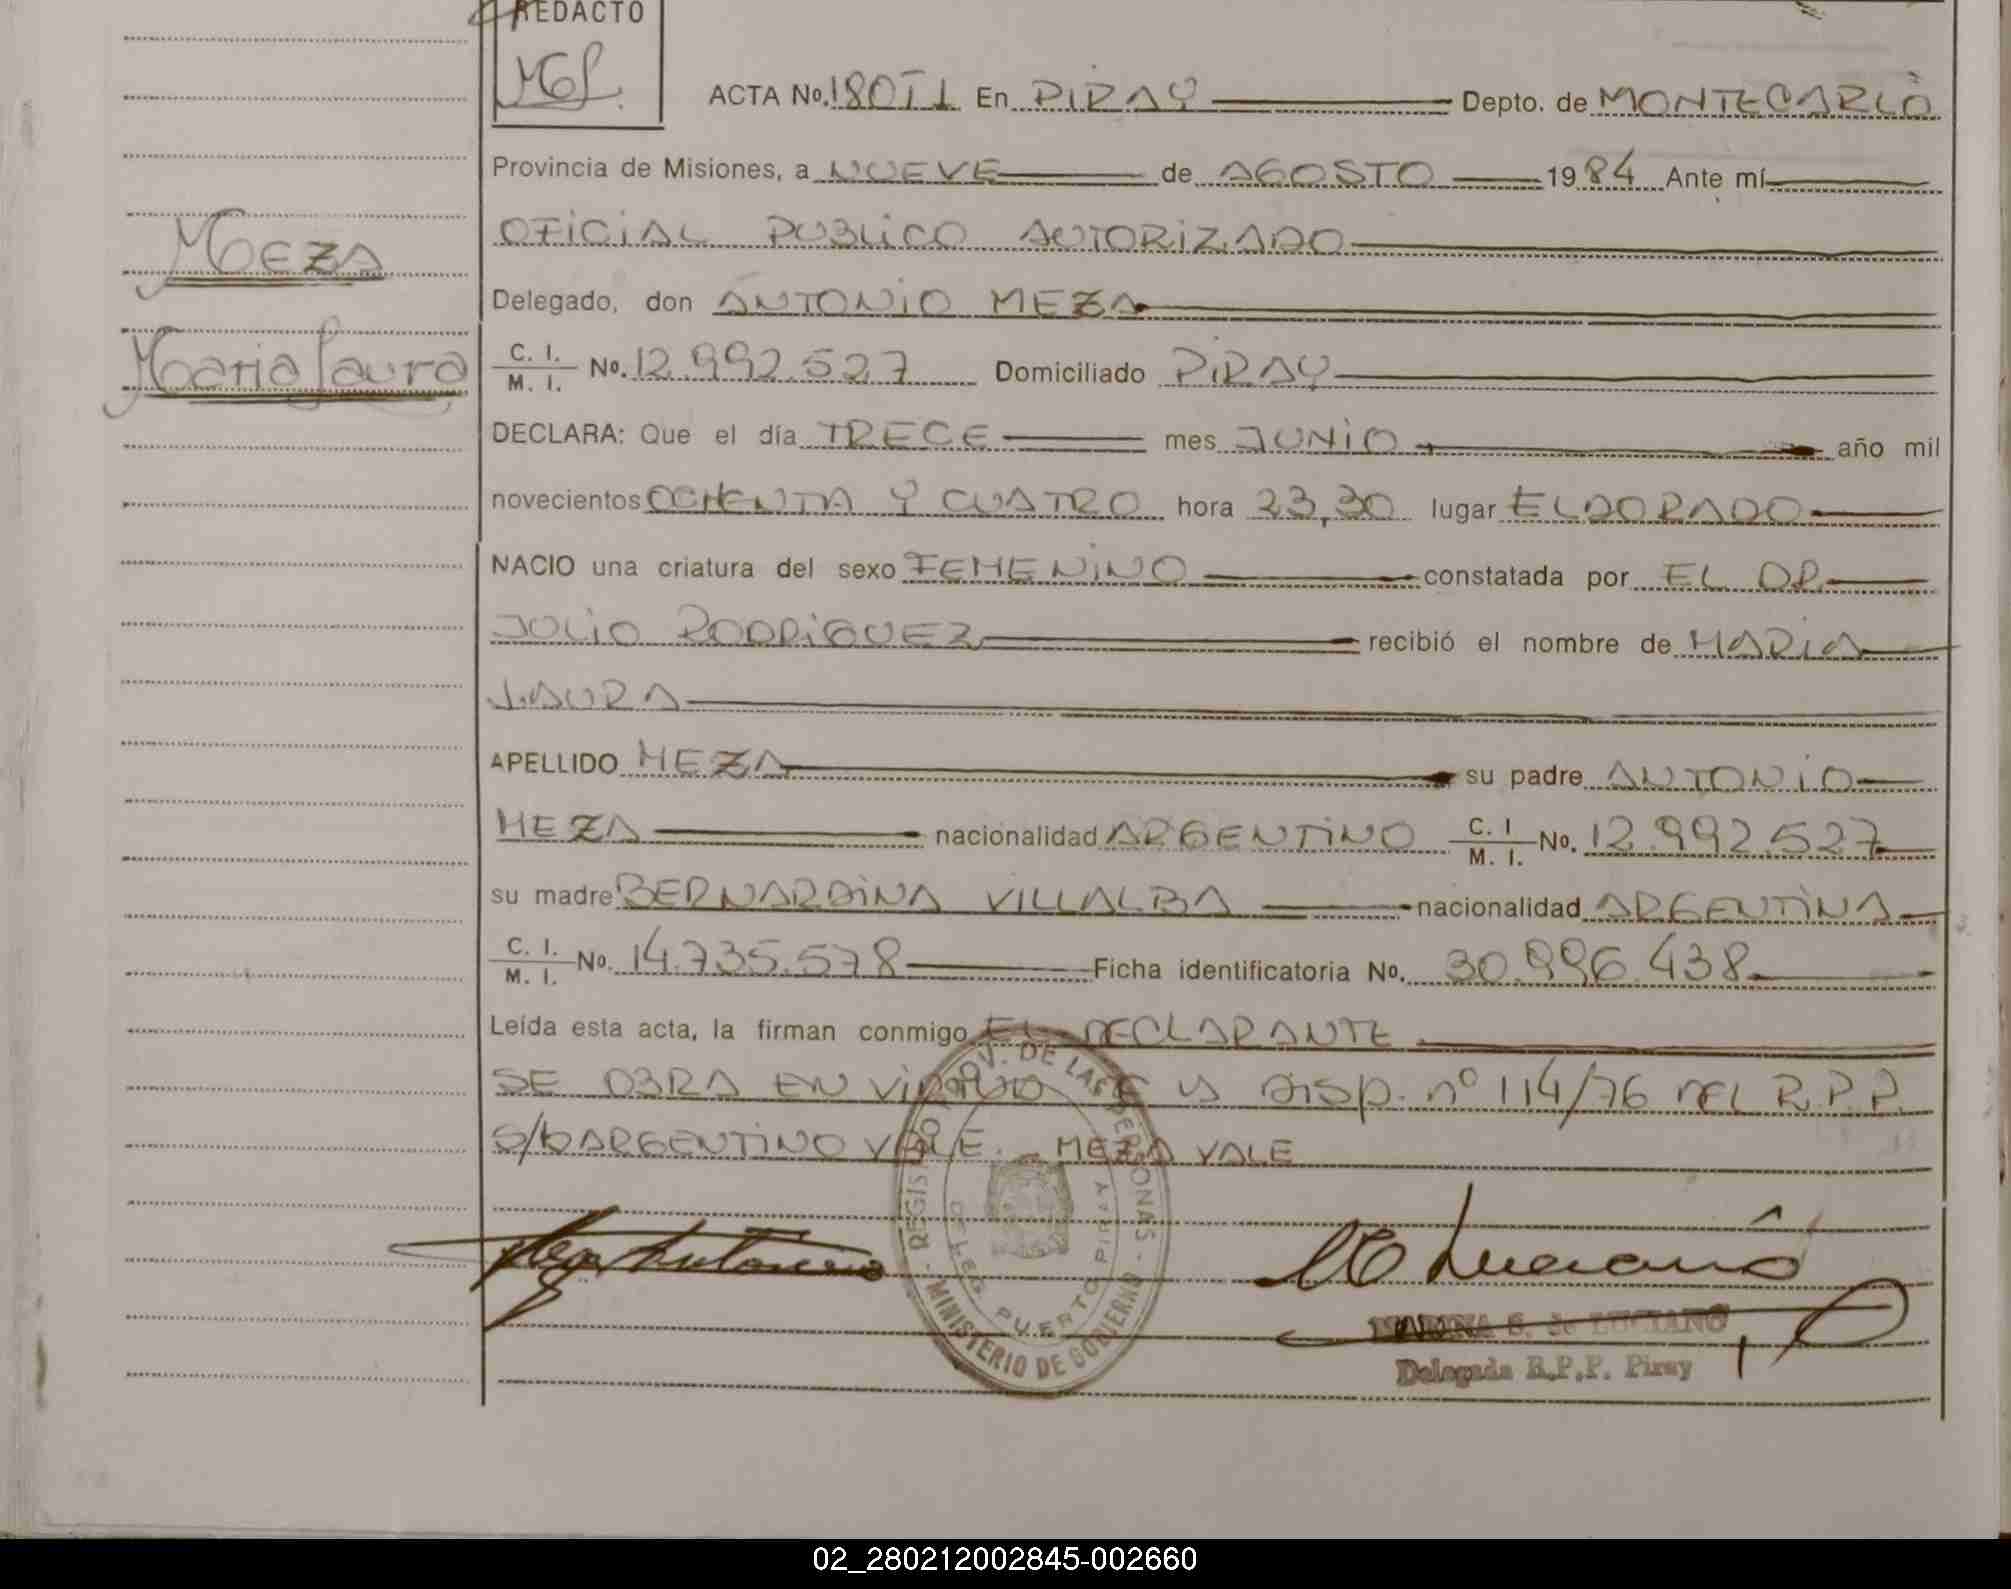 REDACTO
ACTA No. 180 T1 En PIRAY Depto. de MONTECARLO
Provincia de Misiones, a NUEVE de AGOSTO 1984 Ante mí
OFICIAL PUBLICO AUTORIZADO
MEZA
Delegado, don ANTONIO MEZA
Maria Laura
C. I. M. I. No. 12.992.527 Domiciliado PIRAY
DECLARA: Que el día TRECE mes JUNIO año mil
novecientos OCHENTA Y CUATRO hora 23,30 lugar ELDORADO
NACIO una criatura del sexo FEMENINO constatada por EL DR.
JULIO RODRIGUEZ recibió el nombre de MARIA
LAURA
APELLIDO MEZA su padre ANTONIO
MEZA nacionalidad ARGENTINO C. I M. I. No. 12.992.527
su madre BERNARDINA VILLALBA nacionalidad ARGENTINA
C. I. M. I. No. 14.735.578 Ficha identificatoria No. 30.996.438
Leída esta acta, la firman conmigo EL DECLARANTE
SE OBRA EN VIRTUD DE LA DISP. nº 114/76 DEL R.P.P.
S/b ARGENTINO VALE. MEZA VALE
REGIS PROV. DE LAS PERSONAS - MINISTERIO DE GOBIERNO
DELEG PUERTO PIRAY
Meza Antonio
Luciano
MARINA S. de LUCIANO
Delegada R.P.P. Piray
02_280212002845-002660